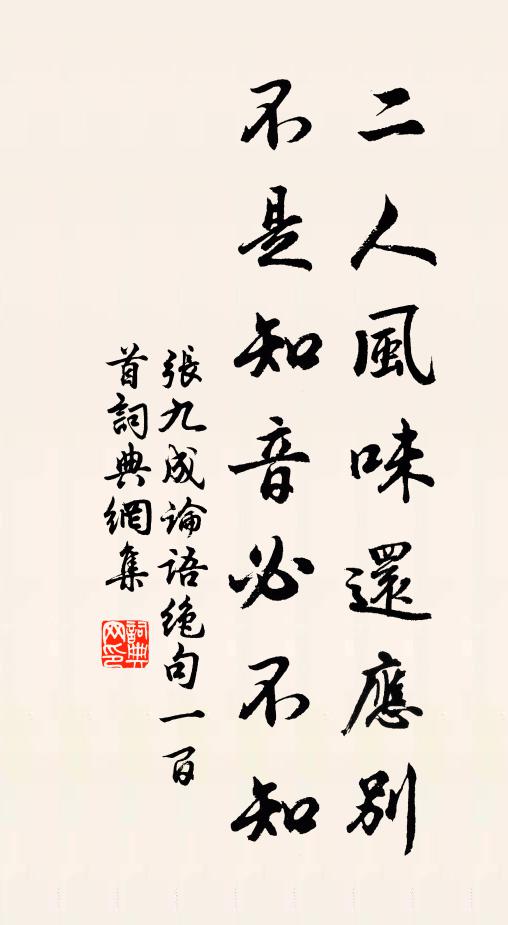 二人風味還應別
不是知音必不知
張九成論語絶句一百
首詞典網集
詞典网印